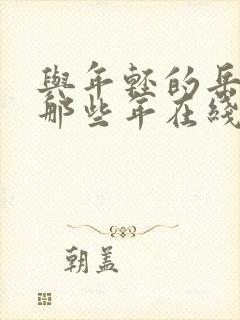 與年轻的岳
那些年在綫
朝盖